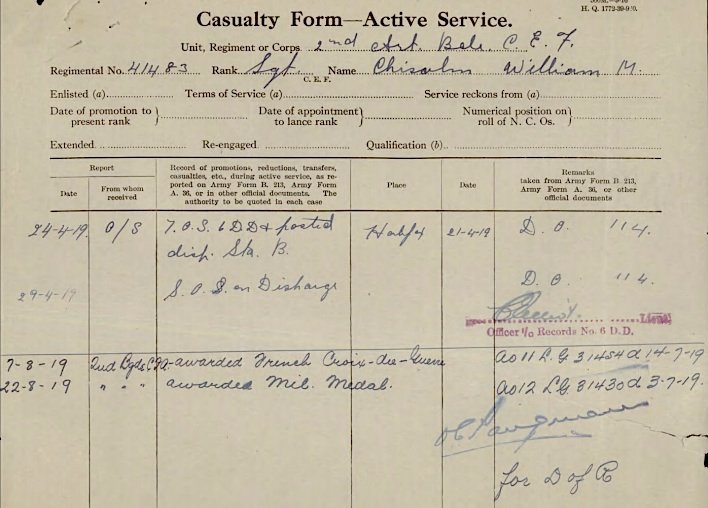 H. Q. 1772-39-920.
Casualty Form—Active Service.
Unit, Regiment or Corps 2nd Art. Bde. C. E. F.
Regimental No. 41483 Rank Sgt Name Chisolm William M.
C. E. F.
Enlisted (a) Terms of Service (a) Service reckons from (a)
Date of promotion to present rank } Date of appointment to lance rank } Numerical position on roll of N. C. Os. }
Extended Re-engaged Qualification (b)
Report
Date
From whom received
Record of promotions, reductions, transfers,
casualties, etc., during active service, as re-
ported on Army Form B. 213, Army Form
A. 36, or in other official documents. The
authority to be quoted in each case
Place
Date
Remarks
taken from Army Form B. 213,
Army Form A. 36, or other
official documents
24-4-19. O/S T.O.S. 6 DD & posted Halifax 21-4-19 D. O. 114.
disp. Sta. B.
29-4-19 S.O.S. on Discharge D. O. 114.
Lieut.
Officer i/c Records No. 6 D.D.
7-8-19 2nd Bgde CFA - awarded French Croix-de-Guerre ao11 L.G. 31454 d 14-7-19
22-8-19 " " " awarded Mil. Medal. ao12 L.G. 31430 d 3-7-19.
for D of R